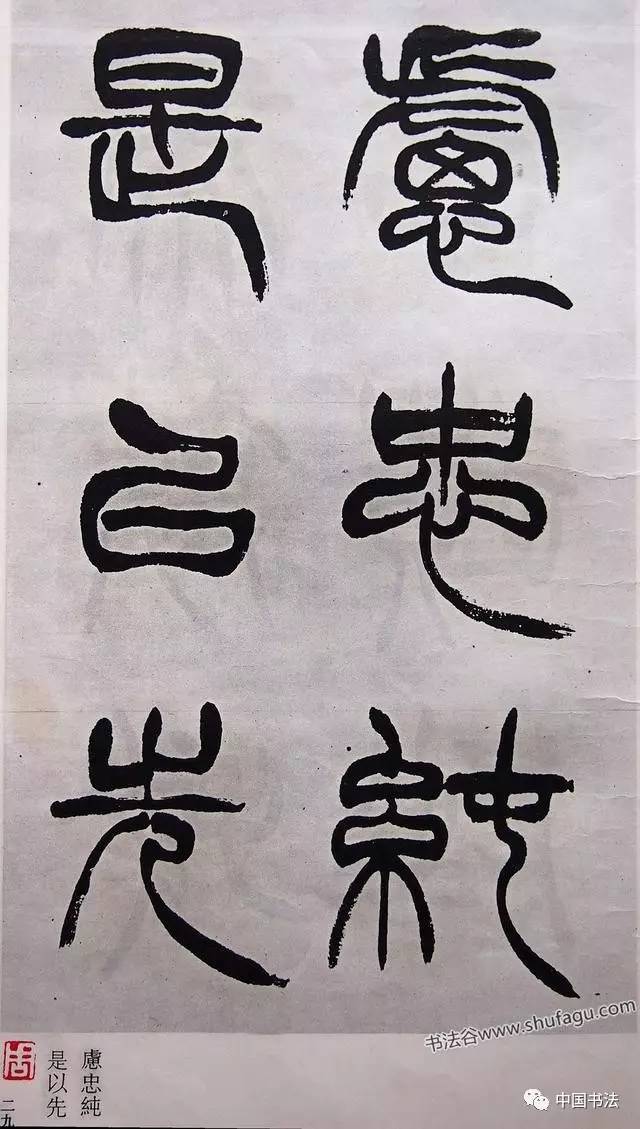 慮忠純
是㠯先
书法谷www.shufagu.com
慮忠純
是以先
二九
中国书法